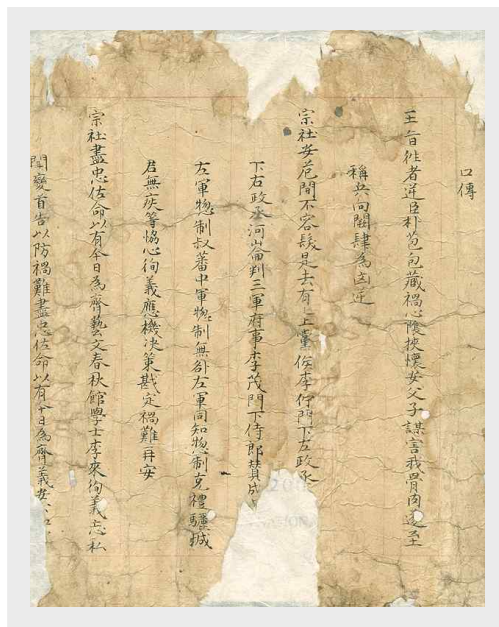 口傳
王旨徃者逆臣朴苞包藏禍心陰挾懷安父子謀害我骨肉遂至
稱兵向闕肆爲凶逆
宗社安危間不容髮是去有上黨侯李佇門下左政丞
下右政丞河崙判三軍府事李茂門下侍郎贊成
左軍惣制叔蕃中軍惣制無咎左軍同知惣制克禮驪城
君無疾等恊心徇義應機决策戡定禍難再安
宗社盡忠佐命以有今日爲齊藝文春秋館學士李來徇義忘私
聞變首告以防禍難盡忠佐命以有今日爲齊義安